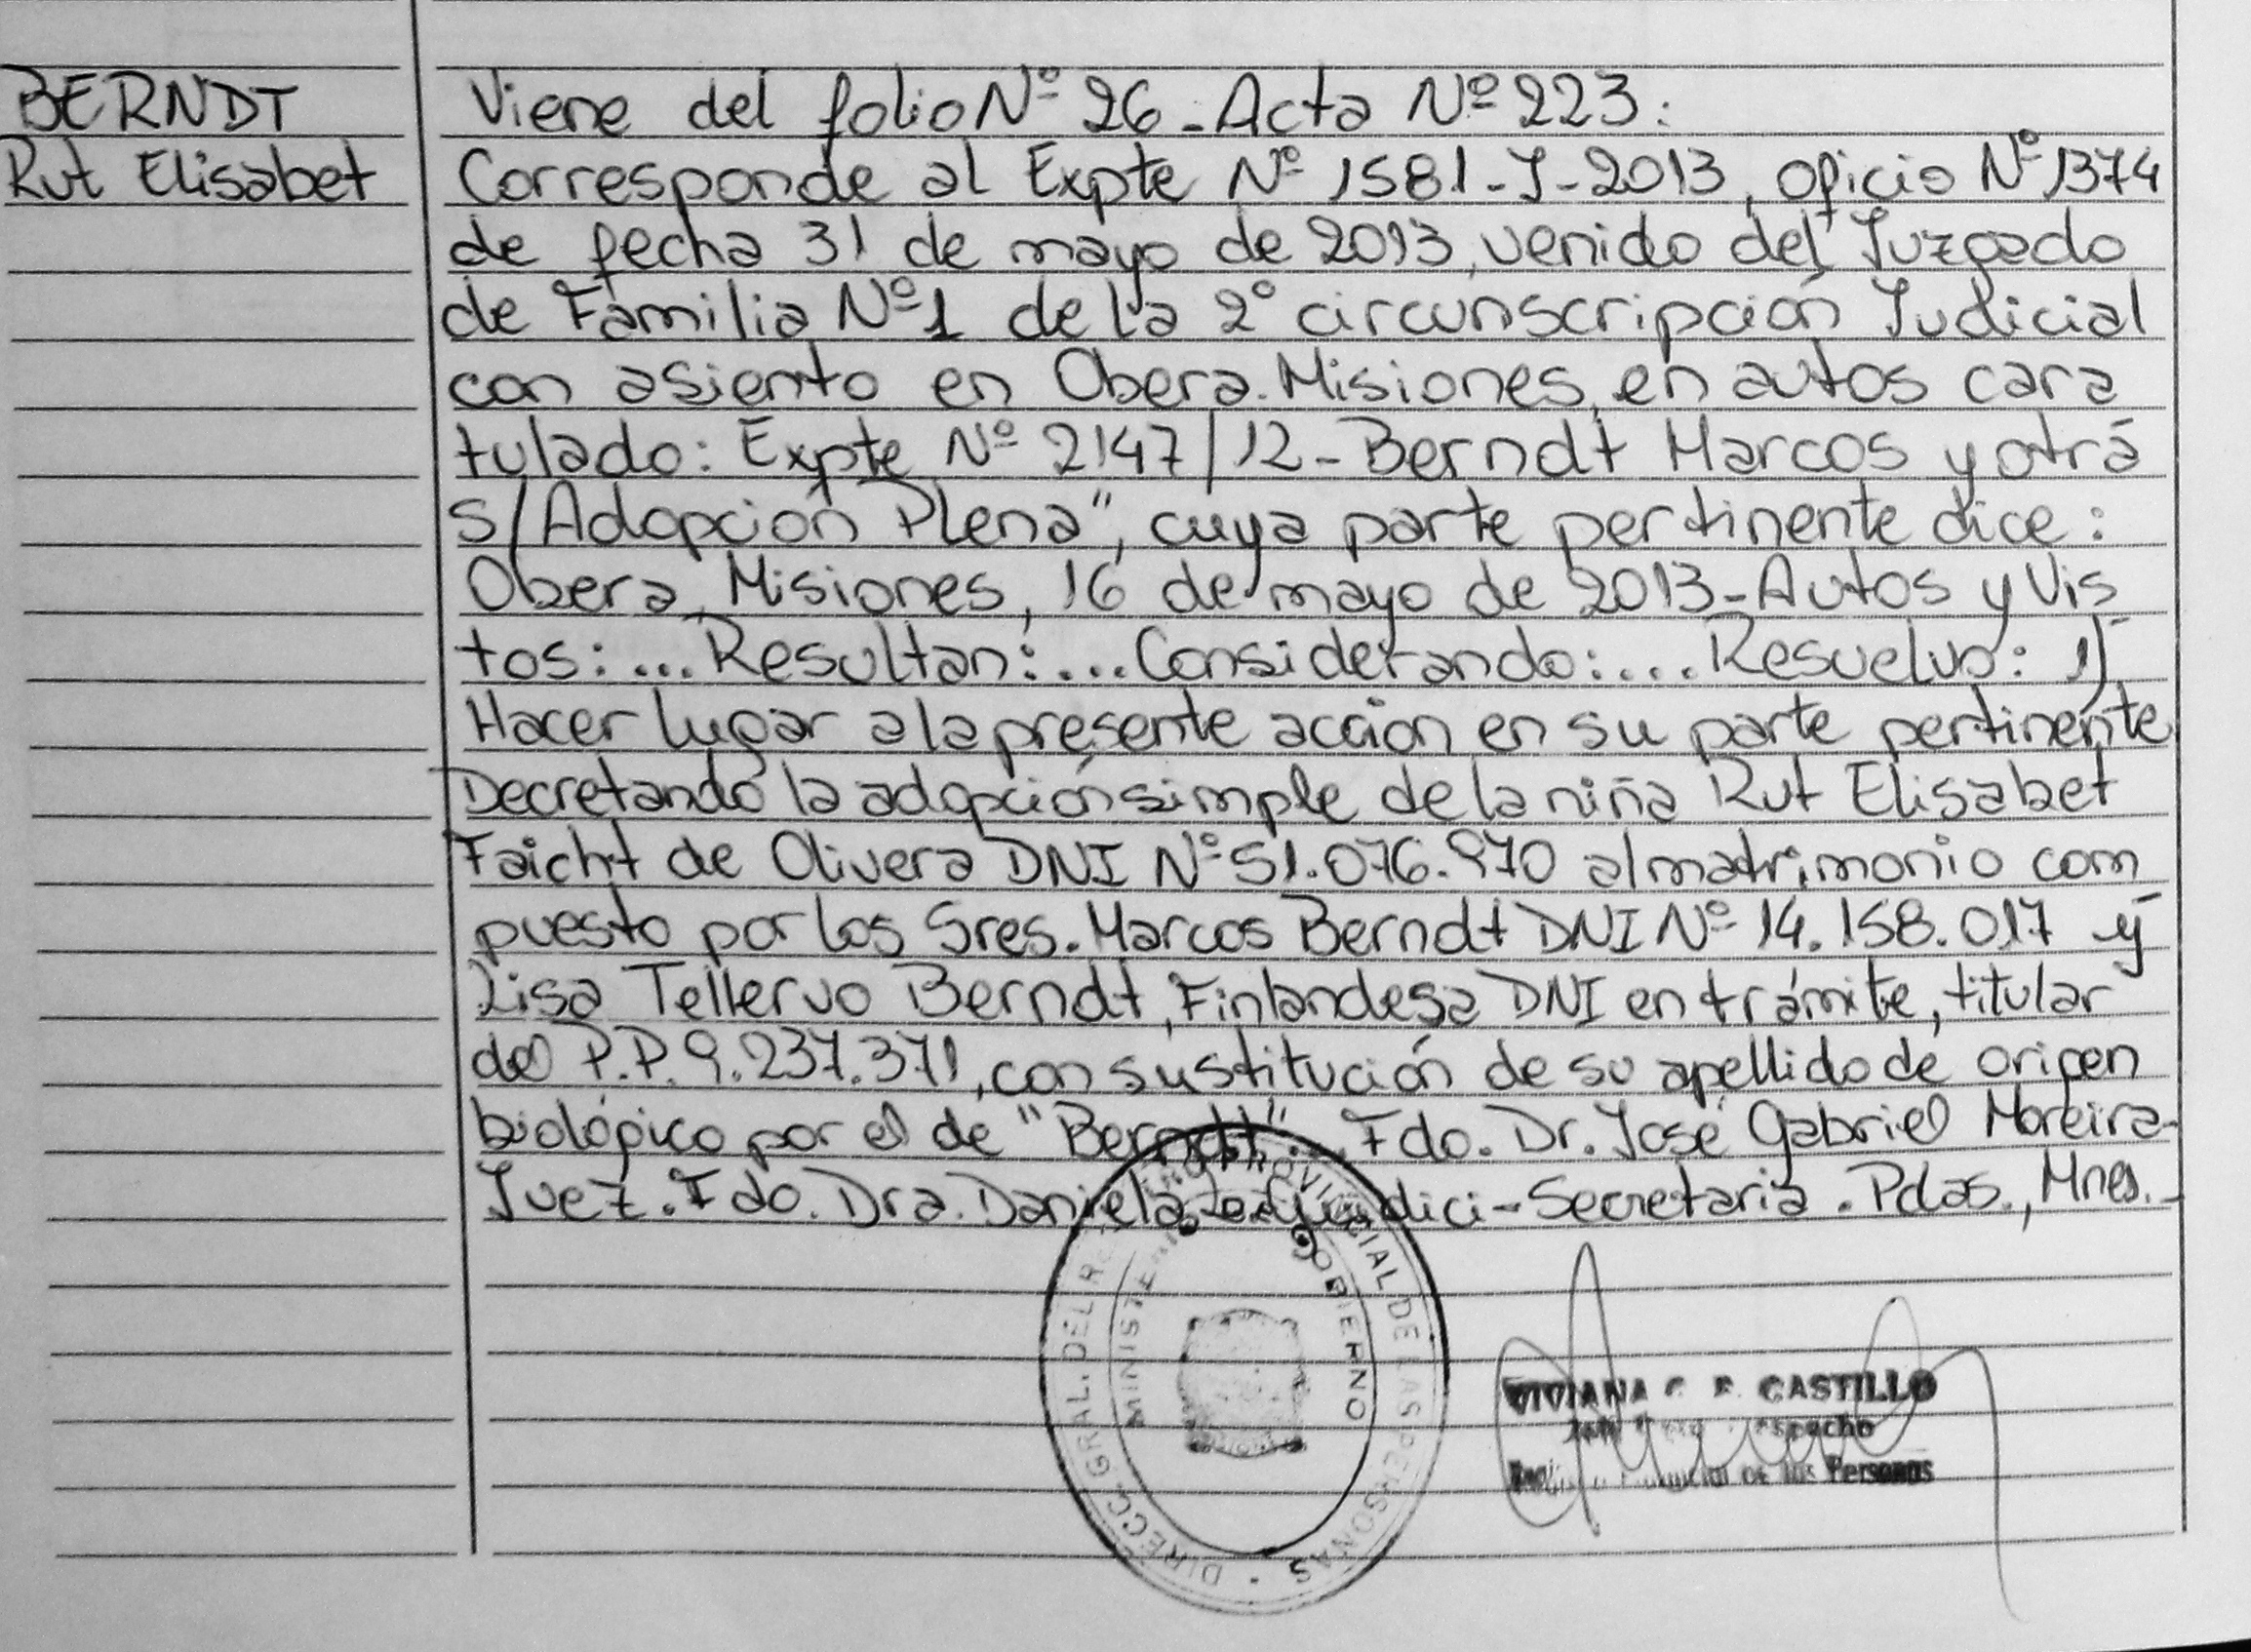 BERNDT
Rut Elisabet
Viene del folio Nº 26 - Acta Nº 223:
Corresponde al Expte Nº 1581-J-2013, Oficio Nº 1374
de fecha 31 de mayo de 2013, venido del Juzgado
de Familia Nº 1 de la 2º circunscripción Judicial
con asiento en Obera. Misiones, en autos cara
tulado: Expte Nº 2147/12 - Berndt Marcos y otra
s/Adopción Plena", cuya parte pertinente dice:
Obera, Misiones, 16 de mayo de 2013 - Autos y Vis
tos: ... Resultan: ... Considerando: ... Resuelvo: 1)
Hacer lugar a la presente acción en su parte pertinente
Decretando la adopción simple de la niña Rut Elisabet
Faicht de Olivera DNI Nº 51.076.970 al matrimonio com
puesto por los Sres. Marcos Berndt DNI Nº 14.158.017 y
Lisa Tellervo Berndt, Finlandesa DNI en trámite, titular
del P.P. 9.237.371, con sustitución de su apellido de origen
biológico por el de "Berndt"... Fdo. Dr. José Gabriel Moreira -
Juez. Fdo. Dra. Daniela - Secretaria. Pdas., Mnes. -
DIRECC. GRAL. DEL PROVINCIAL DE LAS PERSONAS
MINISTE GOBIERNO
VIVIANA CASTILLO
Despacho
de las Personas